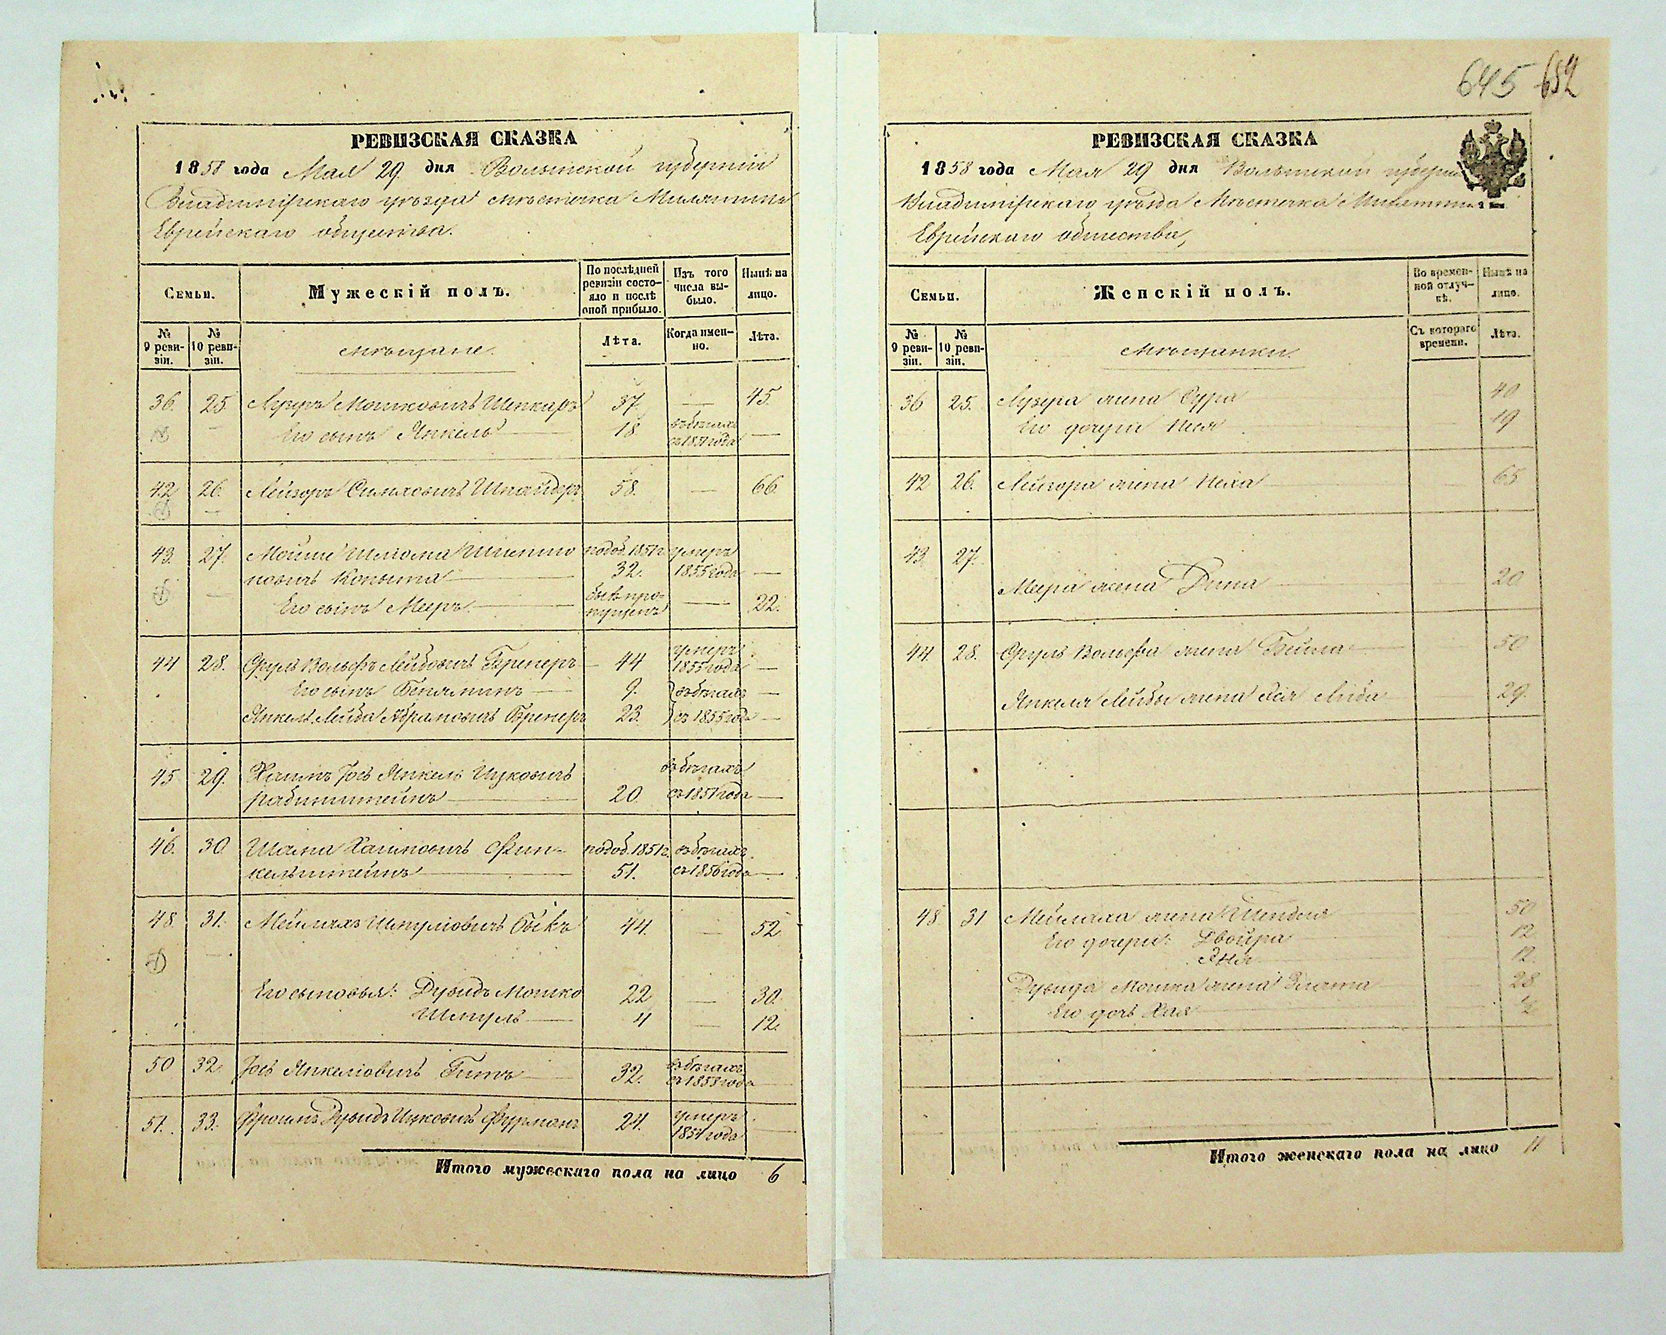 645 652
РЕВИЗСКАЯ СКАЗКА
1858 года Мая 29 дня Волынской губернии
Владимірскаго уѣзда мѣстечка Милятина
Еврейскаго общества.
Семьи.
Мужескій полъ.
По послѣдней ревизіи состояло и послѣ оной прибыло.
Изъ того числа выбыло.
Нынѣ на лицо.
№ 9 ревизіи.
№ 10 ревизіи.
мѣщане.
Лѣта.
Когда именно.
Лѣта.
36. 25. Лузеръ Мошковичъ Шенкаръ 37. — 45.
Его сынъ Янкель 18 въ бѣгахъ съ 1851 года —
42 26. Лейзоръ Симховичъ Шнайдеръ 58. — 66.
43. 27. Мойше Шлома Шминовичъ Копыта подоб. 1851 г. 32. умеръ 1855 года —
Его сынъ Мееръ былъ пропущенъ — 22.
44 28. Сруль Вольфъ Лейбовичъ Бренеръ 44 умеръ 1855 года —
Его сынъ Беньяминъ 9. въ бѣгахъ —
Янкель Лейба Абрамовичъ Бренеръ 23. съ 1855 года —
45 29. Хаимъ Іось Янкель Ицковичъ
Рабинштейнъ 20 въ бѣгахъ съ 1851 года —
46. 30. Шама Хаимовичъ Финкельштейнъ подоб. 1851 г. 51. въ бѣгахъ съ 1856 года —
48. 31. Мейлахъ Шмуліовичъ Быкъ 44. — 52.
Его сыновья: Дувидъ Мошко 22 — 30.
Шмуль 4 — 12.
50 32. Іось Янкеліовичъ Гитъ 32. въ бѣгахъ съ 1853 года
51. 33. Фроимъ Дувидъ Ицковичъ Фурманъ 24. умеръ 1854 года —
Итого мужескаго пола на лицо 6
РЕВИЗСКАЯ СКАЗКА
1858 года Мая 29 дня Волынской губерніи
Владимірскаго уѣзда Мѣстечка Милятина
Еврейскаго общества,
Семьи.
Женскій полъ.
Во временной отлучкѣ.
Нынѣ на лицо.
№ 9 ревизіи.
№ 10 ревизіи.
мѣщанки.
Съ котораго времени.
Лѣта.
36 25. Лузера жена Сура 40
Его дочери Неся 19
42 26. Лейзора жена Неха 65
43. 27.
Меера жена Дина 20
44. 28. Сруль Вольфа жена Бейла 50
Янкеля Лейбы жена Хая Либа 29.
48 31 Мейлаха жена Шейндля 50
Его дочери: Двойра 12
Эня 12.
Дувида Мошка жена Злата 28
Его дочь Хая ½
Итого женскаго пола на лицо 11